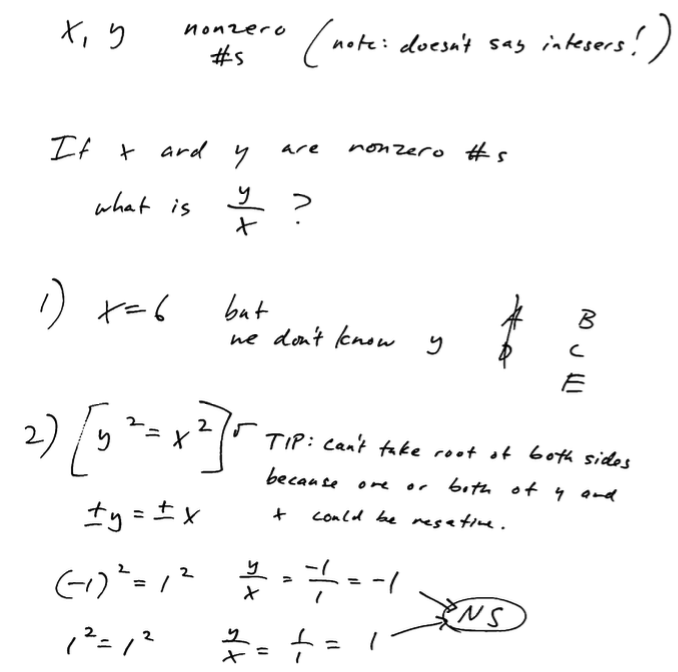 x, y nonzero #s (note: doesn't say integers!)
If x and y are nonzero #s
what is y/x ?
1) x=6 but we don't know y A D B C E
2) [y²=x²]√ TIP: can't take root of both sides
because one or both of y and
±y=±x x could be negative.
(-1)²=1² y/x = -1/1 = -1
NS
1²=1² y/x = 1/1 = 1